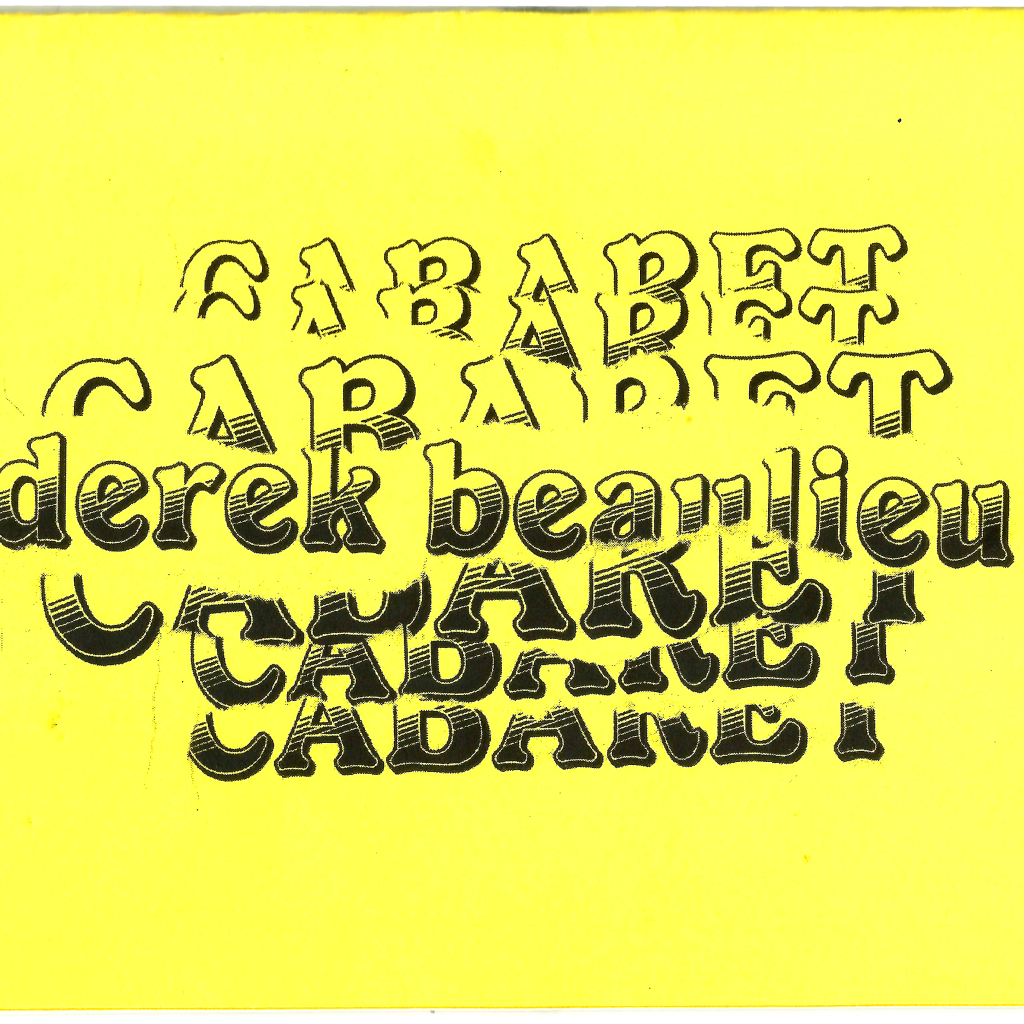 CABARET
CABARET
CABARET
derek beaulieu
CABARET
CABARET
CABARET